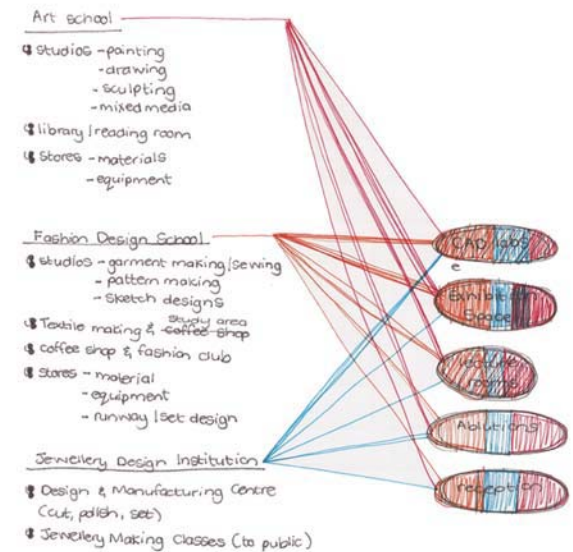 Art school
studios - painting
- drawing
- sculpting
- mixed media
library / reading room
stores - materials
- equipment
Fashion Design School
studios - garment making / sewing
- pattern making
- sketch designs
study area
Textile making & coffee shop
coffee shop & fashion club
stores - material
- equipment
- runway / set design
Jewellery Design Institution
Design & Manufacturing Centre
(cut, polish, set)
Jewellery Making Classes (to public)
CAD labs
e
Exhibition
Space
lecture
rooms
Ablutions
reception